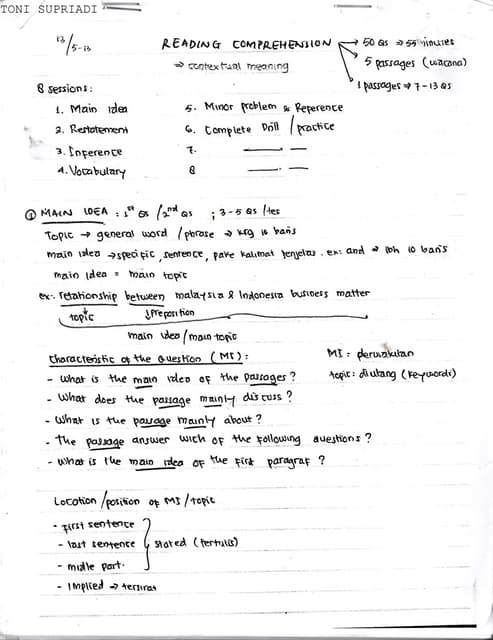 TONI SUPRIADI
13/5-13
READING COMPREHENSION → 50 Qs ⇒ 55 minutes
⇒ contextual meaning
5 passages (wacana)
1 passages ⇒ 7-13 Qs
8 sessions:
1. Main idea
5. Minor problem & Reference
2. Restatement
6. Complete Drill / practice
3. Inference
7. —— —
4. Vocabulary
8 —— —
① MAIN IDEA : 1st Qs / 2nd Qs ; 3-5 Qs / tes
Topic → general word / phrase → krg 10 baris
main idea → specific, sentence, pake kalimat penjelas. ex: and → lbh 10 baris
main idea = main topic
ex: relationship between malaysia & Indonesia business matter
topic ↓ Preposition
main idea / main topic
Characteristic of the Question (MI) :
MI : perwakilan
- What is the main idea of the passages ?
topic : diulang (keywords)
- What does the passage mainly discuss ?
- What is the passage mainly about ?
- The passage answer wich of the following questions ?
- What is the main idea of the first paragraf ?
Location / position of MI / topic
- First sentence
- last sentence } stated (tertulis)
- midle part.
- Implied → tersirat